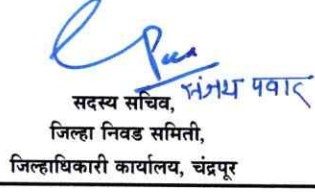 संजय पवार
सदस्य सचिव,
जिल्हा निवड समिती,
जिल्हाधिकारी कार्यालय, चंद्रपूर